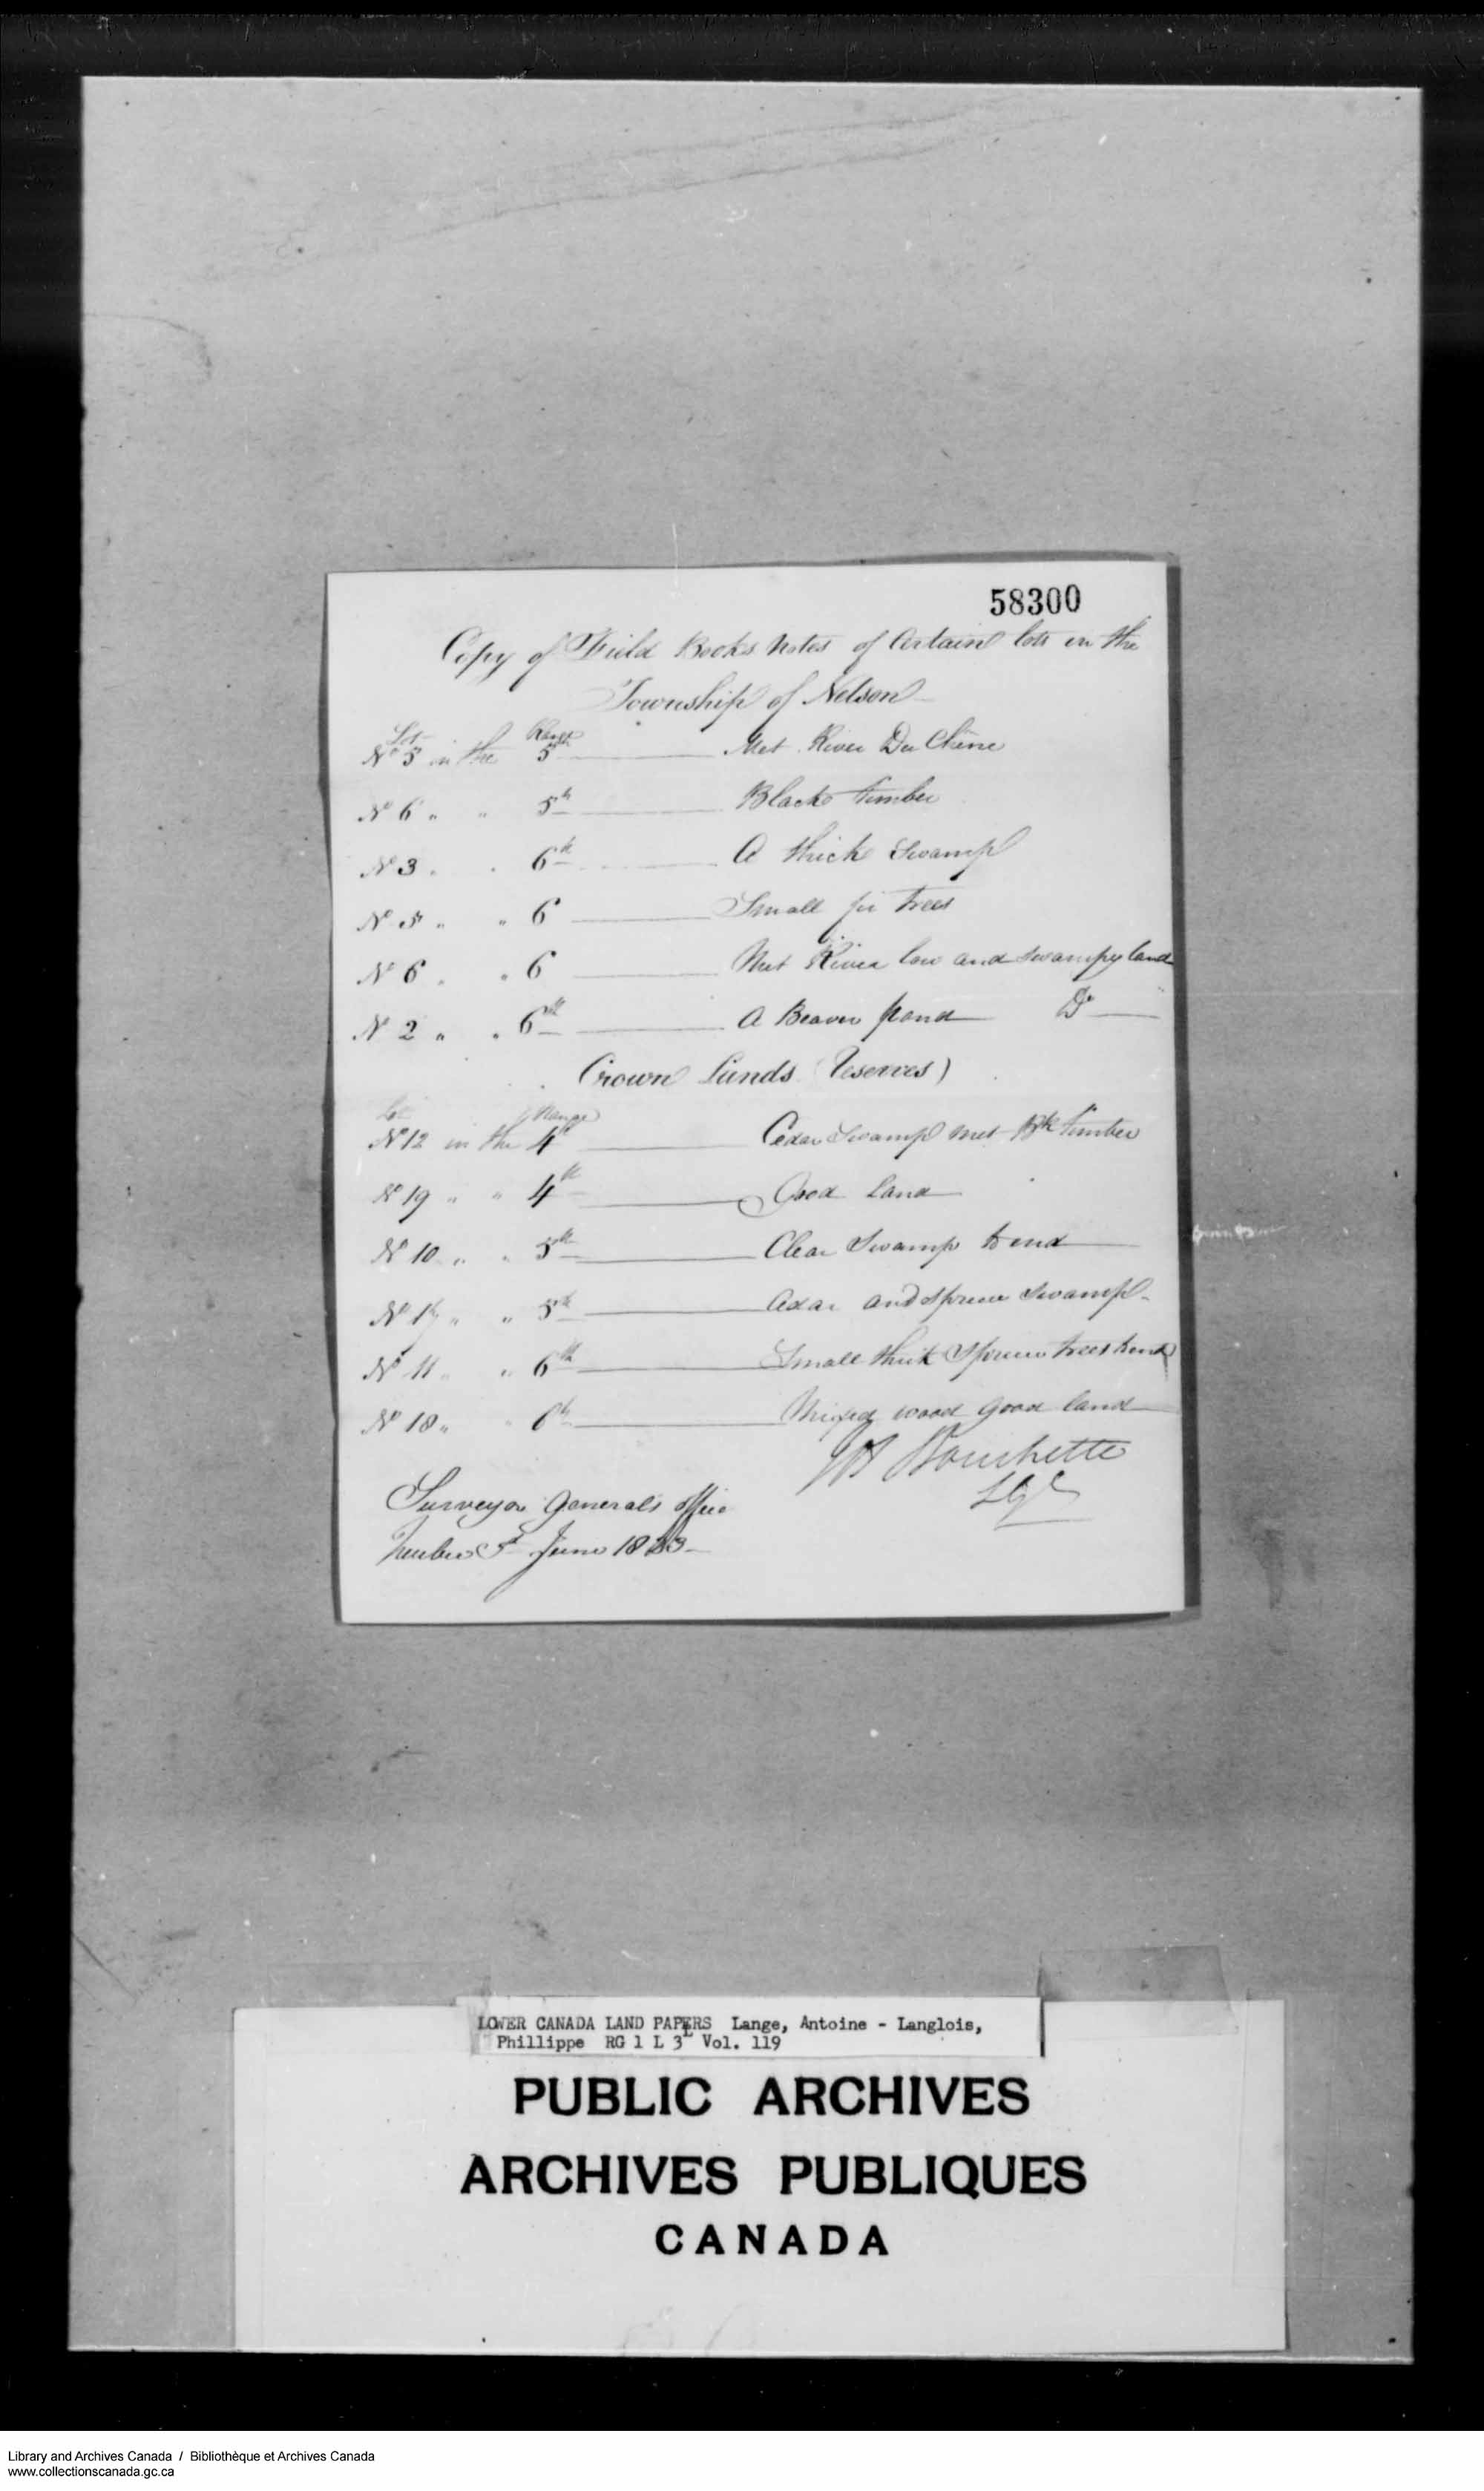 58300
Copy of Field Books Notes of Certain lots in the
Township of Nelson
Lot Range
No 5 in the 5th Met River Du Chêne
No 6 " " 5th Black timber
No 3 " " 6th A thick Swamp
No 5 " " 6 Small fir trees
No 6 " " 6 Met River low and swampy land
No 2 " " 6th A Beaver pond Do
Crown Lands (Reserves)
Lot Range
No 12 in the 4th Cedar Swamp met Blk timber
No 19 " " 4th Good Land
No 10 " " 5th Clear Swamp
No 17 " " 5th Cedar and Spruce Swamp
No 11 " " 6th Small thick Spruce trees
No 18 " " 6th Mixed wood good land
Bouchette
Surveyor Generals Office
Quebec 5t June 1823
LOWER CANADA LAND PAPERS Lange, Antoine - Langlois,
Phillippe RG 1 L 3L Vol. 119
PUBLIC ARCHIVES
ARCHIVES PUBLIQUES
CANADA
Library and Archives Canada / Bibliothèque et Archives Canada
www.collectionscanada.gc.ca